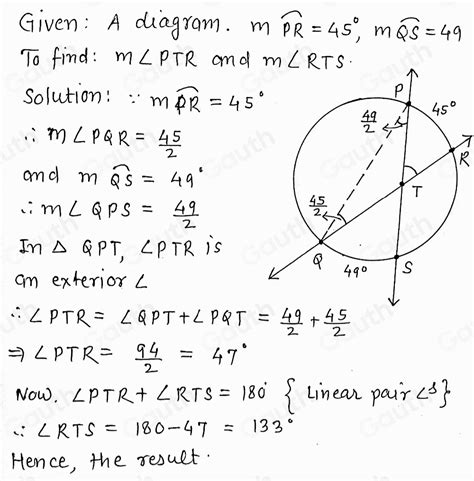 Given: A diagram. m P͡R = 45°, m Q͡S = 49
To find: m∠PTR and m∠RTS.
Solution: ∵ m P͡R = 45°
∴ m∠PQR = 45/2
and m Q͡S = 49°
∴ m∠QPS = 49/2
In △ QPT, ∠PTR is
an exterior ∠
∴ ∠PTR = ∠QPT + ∠PQT = 49/2 + 45/2
⇒ ∠PTR = 94/2 = 47°
Now. ∠PTR + ∠RTS = 180° { Linear pair ∠s}
∴ ∠RTS = 180 - 47 = 133°
Hence, the result.
P
49/2
45°
R
T
45/2
Q
49°
S
Gauth